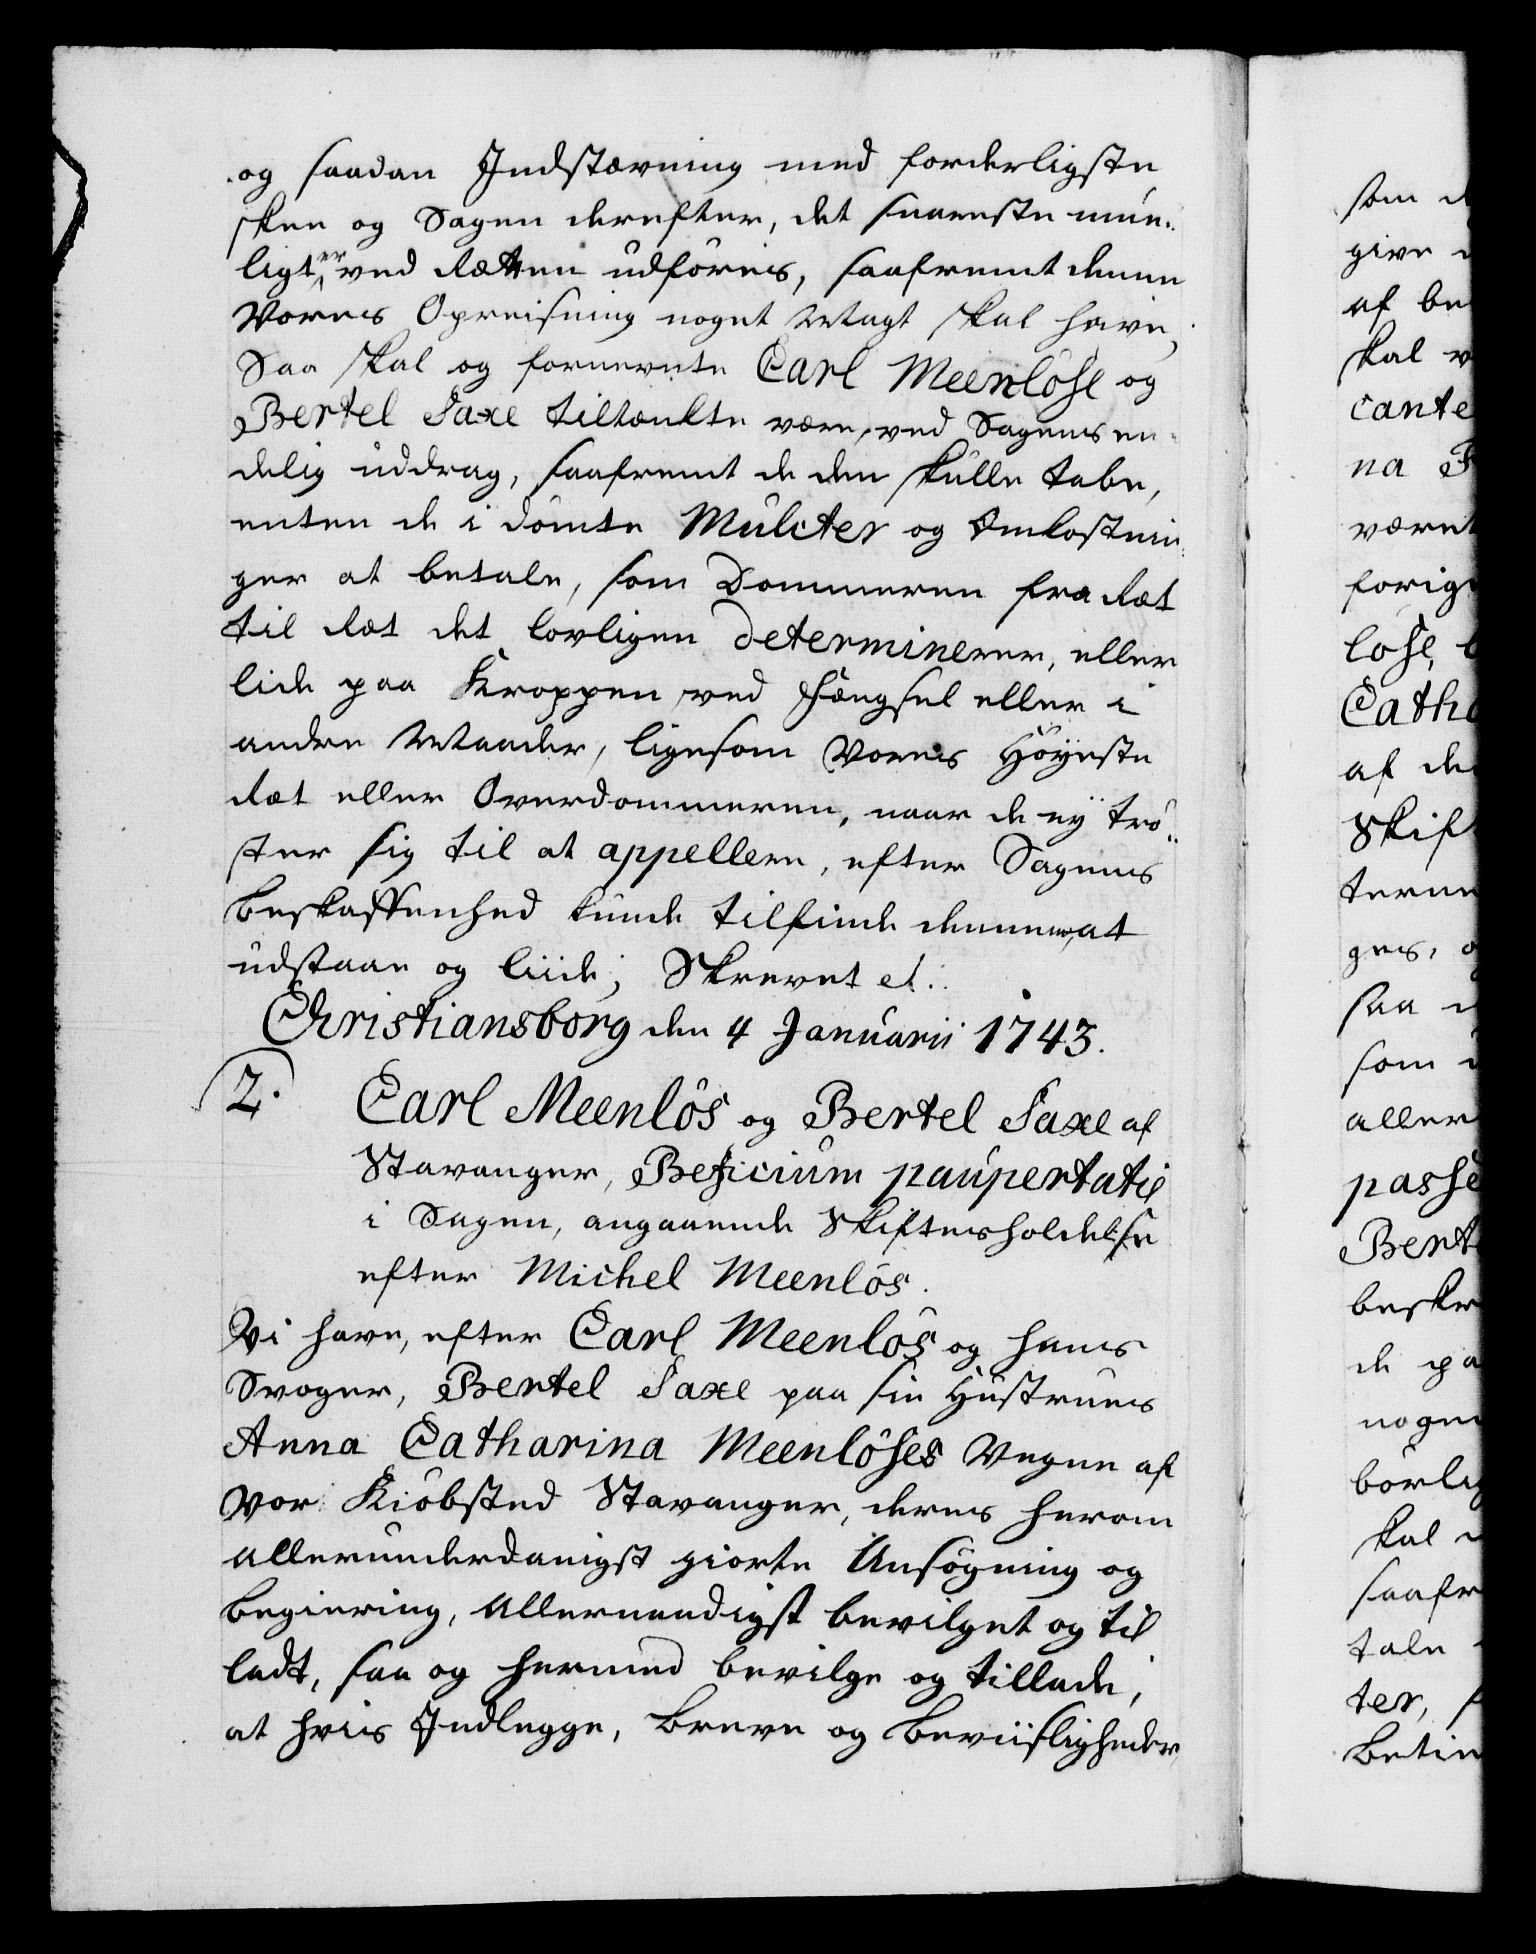 og saadan Indstævning med forderligste
skee og Sagen derefter, det snareste mue-
ligt er, ved Rætten udføres, saafremt denne
Vores Opreisning noget Magt skal have,
Saa skal og fornevnte Carl Meenløse og
Bertel Saxe tiltænkte være, ved Sagens en-
delig uddrag, saafremt de den skulle tabe,
enten de i dömte Mulcter og Omkostnin-
ger at betale, som Dommeren fra Ræt
til Ræt det lovligen determinerer, eller
lide paa Kroppen ved Fængsel eller i
andre Maader, ligesom Vores Höyeste
Ræt eller Overdommeren, naar de ey trö-
ster sig til at appellere, efter Sagens
Beskaffenhed kunde tilfinde dennem, at
udstaae og liide; Skrevet et.
Christiansborg den 4 Januarii 1743.
2.
Carl Meenlös og Bertel Saxe af
Stavanger, Beficium paupertatis
i Sagen, angaaende Skiftesholdelse
efter Michel Meenlös.
Vi have, efter Carl Meenlös og hans
Svoger, Bertel Saxe paa sin Hustrues
Anna Catharina Meenlöses Vegne af
vor Kiöbsted Stavanger, deres herom
allerunderdanigst giorte Ansögning og
Begiering, Allernaadigst bevilget og til
ladt, saa og hermed bevilge og tillade,
at hvis Indlegge, Breve og Beviisligheder,
som d
give
af be
skal v
cante
na F
været
forig
löse,
Catha
af de
Skift
terne
ges,
saa
som
aller
passe
Berte
beskr
de pa
nogen
börlig
skal
saafr
tale
ter,
Betin